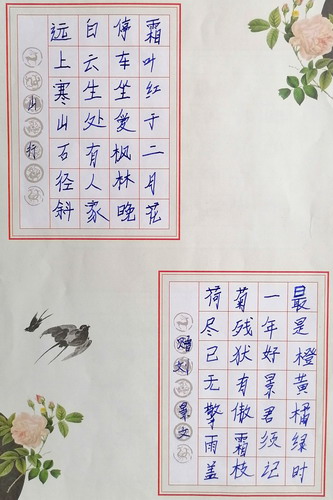 山行
远上寒山石径斜
白云生处有人家
停车坐爱枫林晚
霜叶红于二月花
赠刘景文
荷尽已无擎雨盖
菊残犹有傲霜枝
一年好景君须记
最是橙黄橘绿时